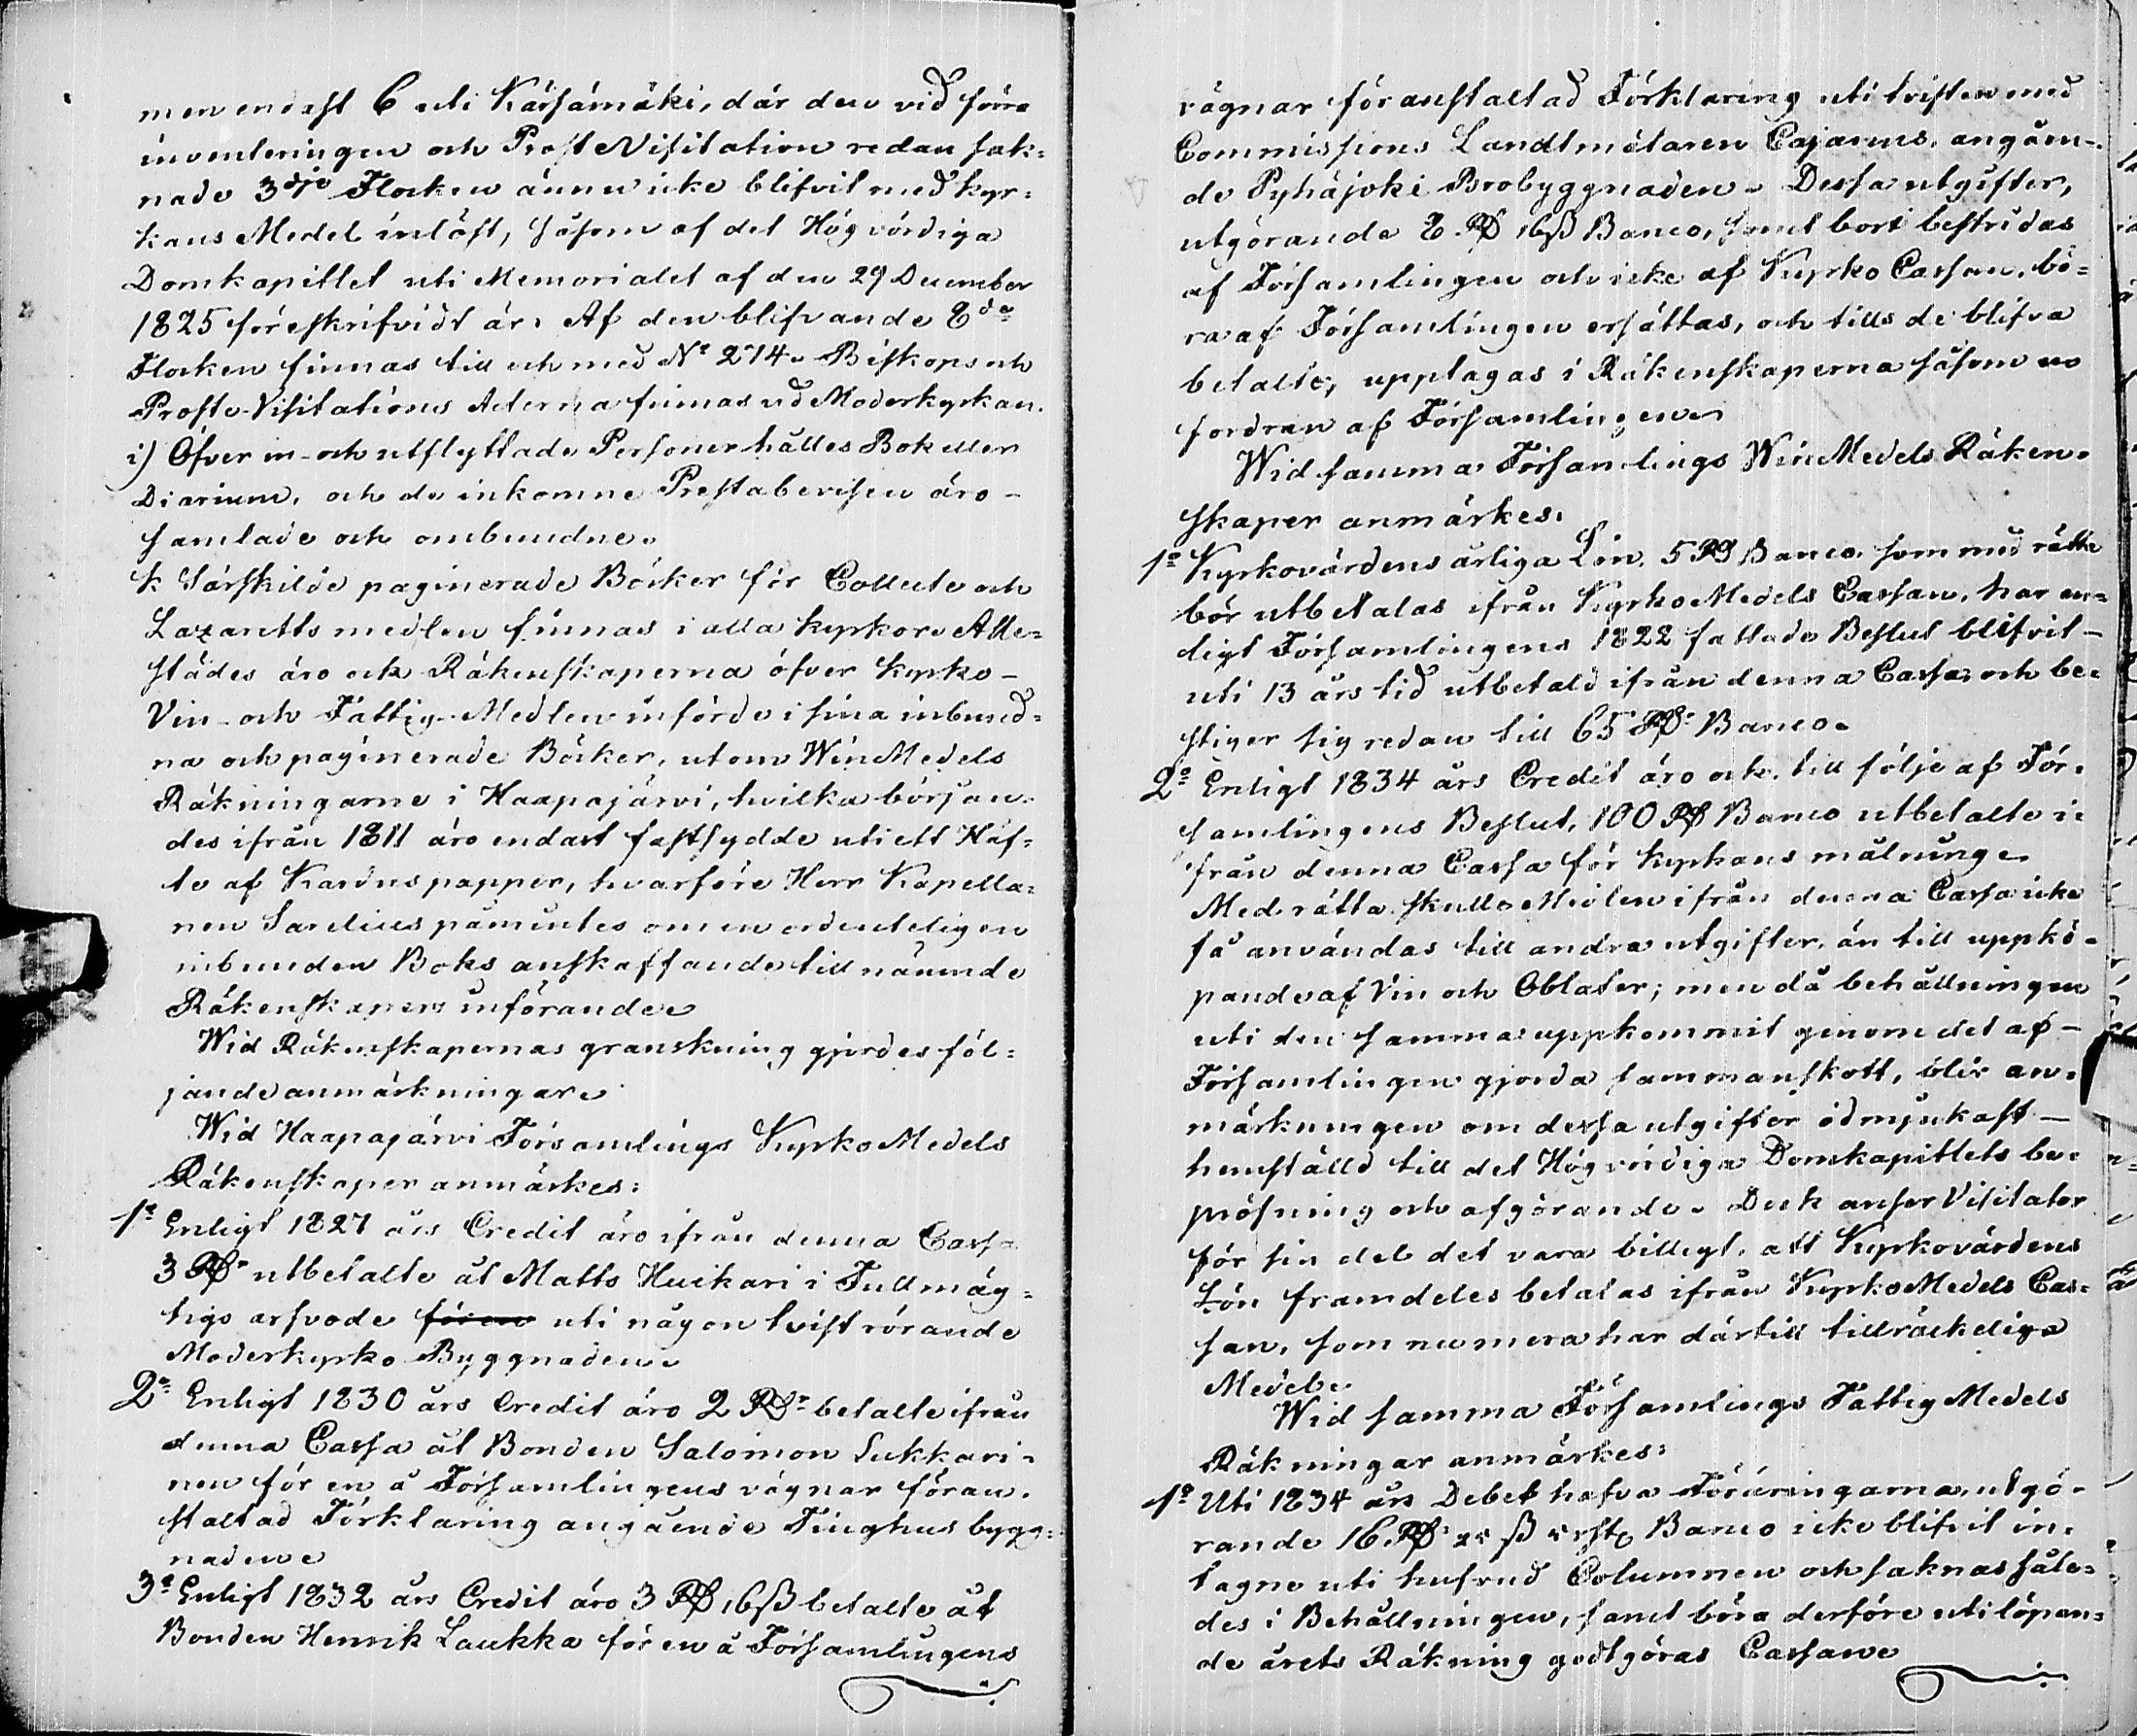 men endast 6 uti Kärsämäki, där den vid förra
inventeringen och ProsteVisitation redan sak=
nade 3dje Flocken ännu icke blifvit med kyr=
kans Medel inlöst, såsom af det Högvördiga
Domkapitlet uti Memorialet af den 29 December
1825 föreskrifvidt är. Af den blifvande 8de
Flocken finnas till och med No 274. Biskops och
Proste-Visitations Acterna finnas vid Moderkyrkan.
i) Öfver in- och utflyttade Personer hålles Bok eller
Diarium, och de inkomne Prestabevisen äro -
samlade och ombundne.
k Särskilde paginerade Böcker för Collecte och
Lazaretts medlen finnas i alla kyrkor. Alle=
städes äro ock Räkenskaperna öfver Kyrko -
Vin- och Fattig-Medlen införde i sina inbund=
na och paginerade Böcker, utom WinMedels
Räkningarne i Haapajärvi, hvilka början=
des ifrån 1811 äro endast fastsydde uti ett Häf=
te af Karduspapper, hvarföre Herr Kapella=
nen Sarelius påmintes om en ordenteligen
inbunden Boks anskaffande till nämnde
Räkenskapers införande.
Wid Räkenskapernas granskning gjordes föl=
jande anmärkningar.
Wid Haapajärvi Församlings KyrkoMedels
Räkenskaper anmärkes:
1o Enligt 1827 års Credit äro ifrån denna Cassa
3 RD utbetalte åt Matts Huikari i Fullmäg=
tigs arfvode för en uti någon tvist rörande
Moderkyrko Byggnaden.
2o Enligt 1830 års Credit äro 2 RD betalte ifrån
denna Cassa åt Bonden Salomon Lukkari=
nen för en å Församlingens vägnar föran=
staltad Förklaring angående Tinghus bygg=
naden.
3o Enligt 1832 års Credit äro 3 RD 16ß betalte åt
Bonden Henrik Laukka för en å Församlingens
vägnar föranstaltad Förklaring uti tvisten med
Commissions Landtmätaren Cajanus, angåen=
de Pyhäjoki Brobyggnaden. Dessa utgifter,
utgörande 8 RD 16ß Banco, samt bort bestridas
af Församlingen och icke af Kyrko Cassan, bö=
ra af Församlingen ersättas, och tills de blifva
betalte, upptagas i Räkenskaperna såsom en
fordran af Församlingen.
Wid samma Församlings WinMedels Räken=
skaper anmärkes:
1o Kyrkovärdens årliga Lön, 5 RD Banco, som med rätta
bör utbetalas ifrån KyrkoMedels Cassan, har en=
ligt Församlingens 1822 fattade Beslut blifvit -
uti 13 års tid utbetald ifrån denna Cassa, och be=
stiger sig redan till 65 RD Banco.
2o Enligt 1834 års Credit äro ock, till följe af För=
samlingens Beslut, 100 RD Banco utbetalte i=
från denna Cassa för kyrkans målning.
Med rätta skulle Medlen ifrån denna Cassa icke
få användas till andra utgifter, än till uppkö=
pande af Vin och Oblater; men då behållningen
uti den samma uppkommit genom det af -
Församlingen gjorda sammanskott, blir an=
märkningen om dessa utgifter ödmjukast -
hemställd till det Högvördiga Domkapitlets be=
pröfning och afgörande. Dock anser Visitator
för sin del det vara billigt, att Kyrkovärdens
Lön framdeles betalas ifrån KyrkoMedels Cas=
san, som nu mera har därtill tillräckeliga
Medel.
Wid samma Församlings Fattig Medels
Räkningar anmärkes:
1o Uti 1834 års Debet hafva Föräringarna, utgö=
rande 16 RD ß Banco icke blifvit in=
tagne uti hufvud Columnen och saknas såle=
des i Behållningen, samt böra derföre uti löpan=
de årets Räkning godtgöras Cassan.